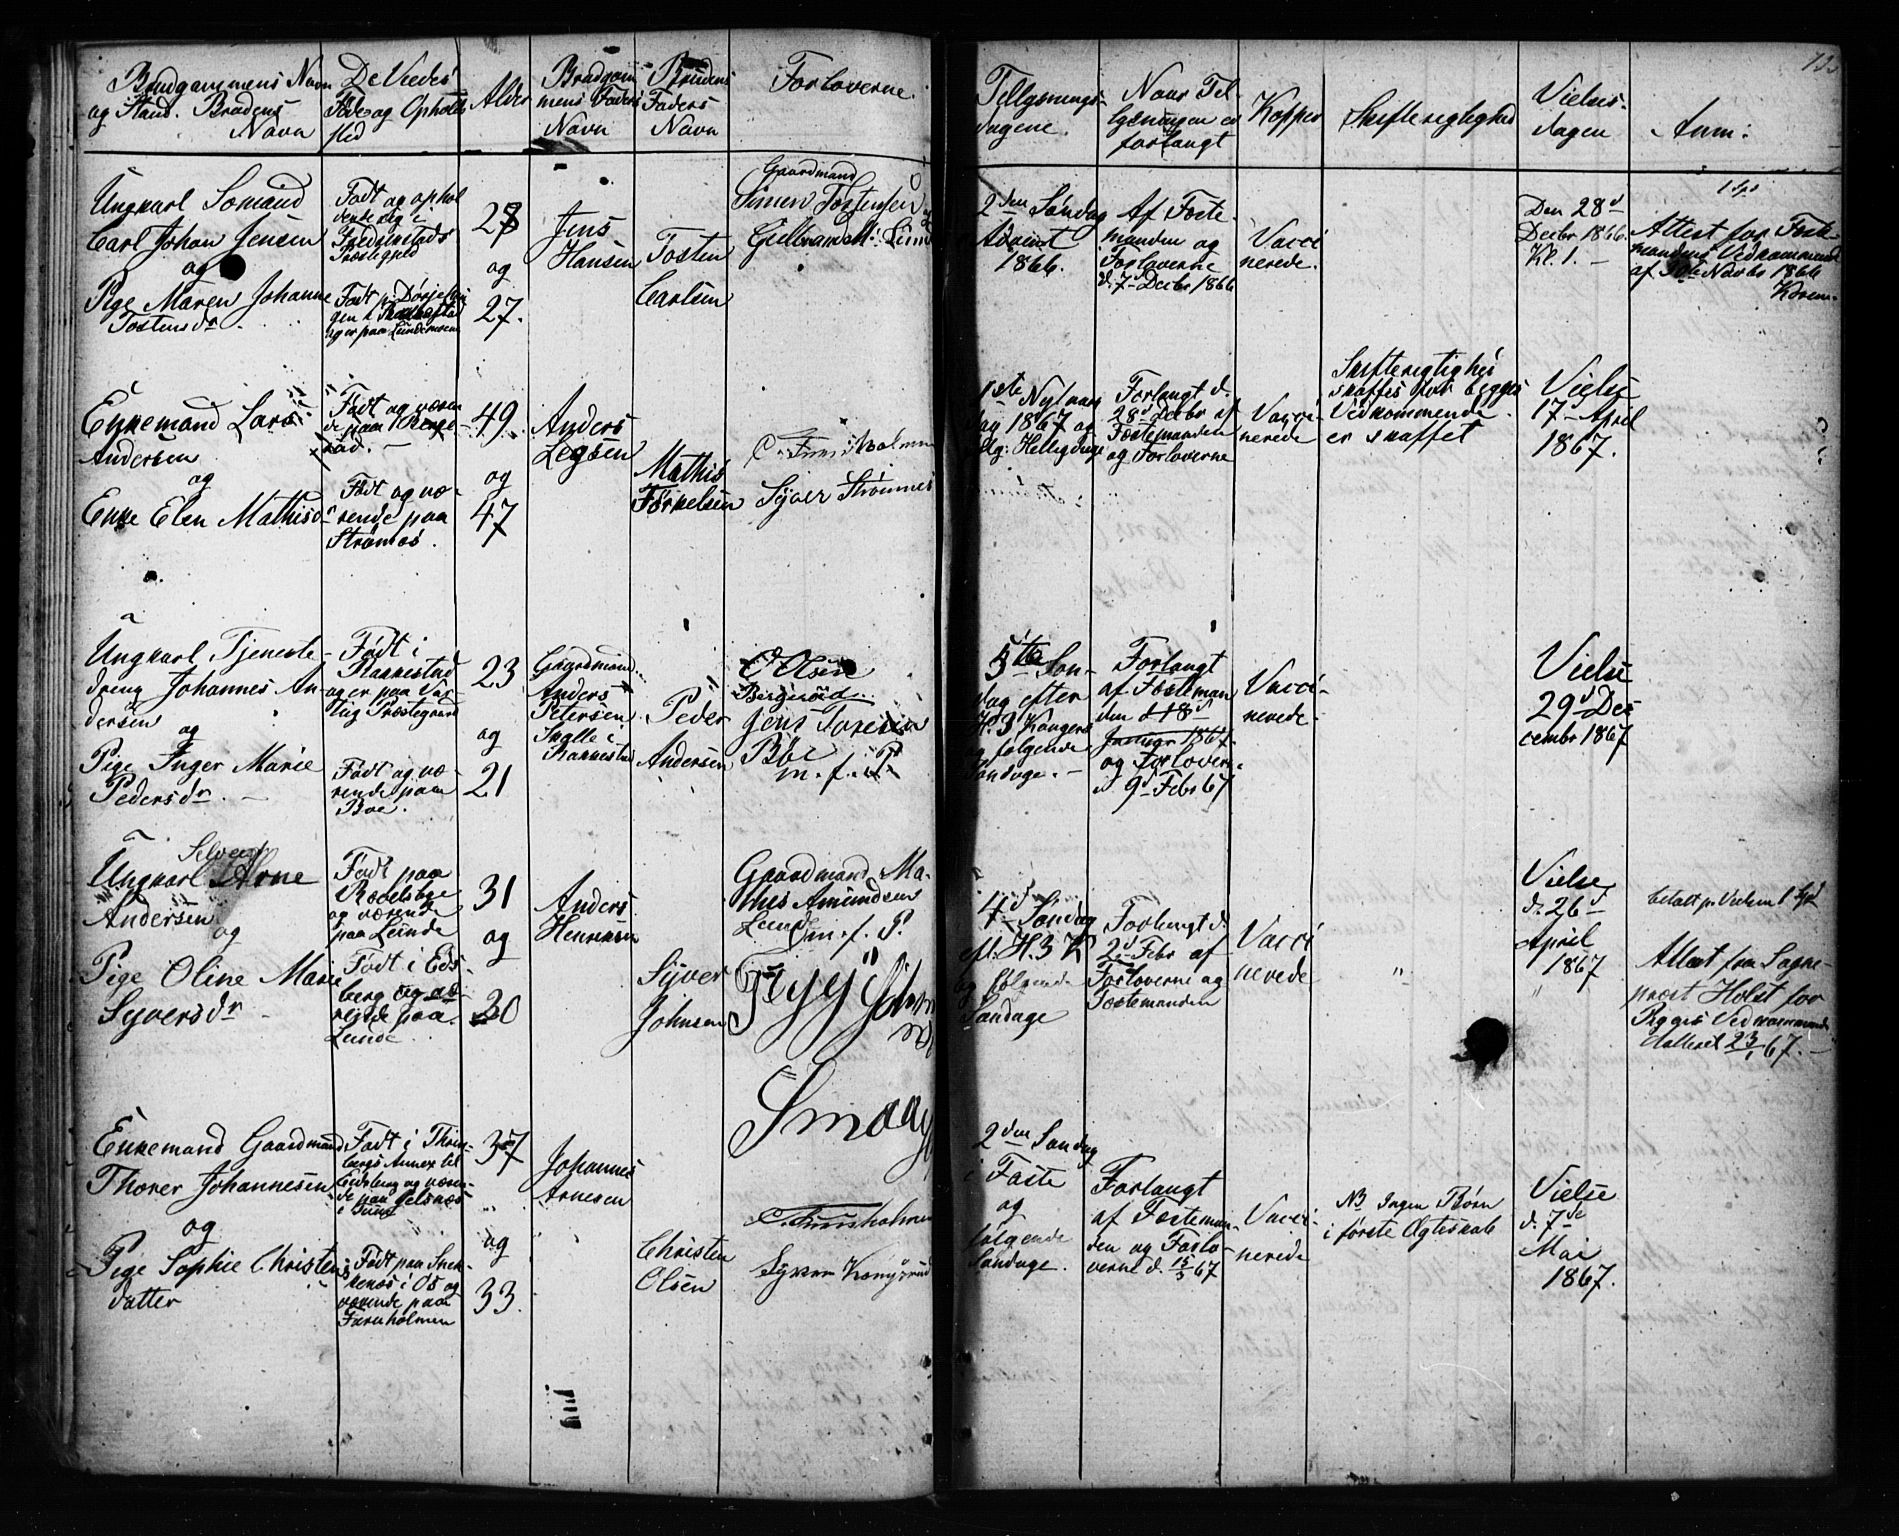 Brudgommens Navn
og Stand. Brudens
Navn
De Viedes
Føde og Opholds
sted
Alder
Brudgom
mens Faders
Navn
Brudens
Faders
Navn
Forloverne
Tillysnings-
dagene.
Naar Til-
lysningen er
forlangt
Kopper
Skifterigtighed
Vielses-
dagen
Anm:
Ungkarl Somand
Carl Johan Jensen
og
Pige Maren Johanne
Tostensdr.
Født og ophol
dende sig i
Fredrikstads
Præstegjeld
Født p.
28
og
27.
Jens
Hansen
Tosten
Carlsen
Gaardmand
Simen Tostensen
2den Søndag
Advent
1866.
Af Fæste-
manden og
Forloverne
d. 7de Decbr 1866
Vacci
nerede.
Den 28d
Decbr 1866.
Kl. 1. -
Attest for Fæste-
mandens Vedkommende
af Novbr 1866
Enkemand Lars
Andersen
og
Enke Elen Mathisd.
Født og væren
de paa
Født og væ-
rende paa
Strømnes.
49.
og
47
Anders
Mathis
Torkelsen
Syver Strømnes
1ste Nytaars
dag 1867 og
flg: Helligdage
Forlangt d.
28d Decbr af
Fæstemanden
og Forloverne
Vacci-
nerede
Skifterigtighed
skaffes for begges
Vedkommende.
er skaffet
Vielse
17de April
1867.
Ungkarl Tjeneste-
dreng Johannes An-
dersen
og
Pige Inger Marie
Pedersdr. -
Født i
Rakkestad
og er paa
Præstegaard
Født og væ-
rende paa
Boe.
23
og
21
Gaardmand
Anders
Petersen
i
Rakkestad
Peder
Andersen
O Olsen
Bergerød
Jens
Boe
m. f. P.
5te Søn-
dag efter
H. 3 Konger
og følgende
Søndage. -
Forlangt
af Fæsteman
den d 18d
Januar 1867.
og Forlovere
d 9d Febr 67
Vacci-
nerede-
Vielse
29d De-
cembr 1867
Ungkarl Arne
Andersen
og
Pige Oline Marie
Syversdr -
Født paa
og værende
paa Lunde
Født i Eds-
berg og væ-
rende paa
Lunde.
31
og
30
Anders
Henriksen
Syver
Johnsen
Gaardmand Ma-
this Amundsen
Lund m. f. P.
4d Søndag
eft. H. 3 K
og følgende
Søndage
Forlangt d.
2d Febr af
Forloverne og
Fæstemanden
Vacci
nerede
"
Vielse
d. 26d
April
1867
"
betalt pr Vielsen 1
Attest fra Sogne-
præst Holst for
Piges Vedkommende
dateret 23/1 67. -
Smaag
Enkemand Gaardmand
Thorer Johannesen
og
Pige Sophie Christens
datter
Født i Thrøg-
stads Annex til
Eidsberg og væren-
de paa
Født paa
i Os og
værende paa
Furuholmen
37
og
33.
Johannes
Arnesen
Christen
Olsen
C. Furuholmen
2den Søndag
i Faste
og
følgende
Søndage.
Forlangt
af Fæsteman-
den og Forlo-
verne d. 15/3 67
Vacci-
nerede
NB Ingen Børn
i første Ægteskab
Vielse
d. 7de
Mai
1867.